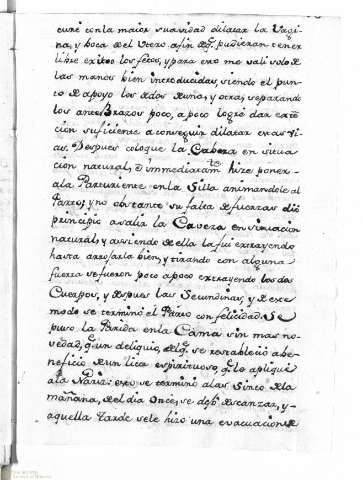 curé con la maior suavidad dilatar la Vagi
na, y boca del Utero a fin de q.e pudieran tener
libre exito los fetos, y para esto me vali solo de
las manos bien introducidas, siendo el pun
to de apoyo los dedos de una, y otra, separando
los ante Brazos poco, a poco logré dar exten
cion suficiente a conseguir dilatar estas vi
as. Despues coloque la Cabeza en situa
cion natural, é immediatam.te hize poner
a la Parturiente en la Silla animandole al
Parto, y no obstante su falta de fuerzas dió
principio a salir la Caveza en situacion
natural, y asiendo de ella la fui extrayendo
hasta arrojarla bien, y tirando con alguna
fuerza se fueron poco a poco extrayendo los dos
Cuerpos, y despues las Secundinas, y de este
modo se terminó el Parto con felicidad. Se
puso la Parida en la Cama sin mas no
vedad, q.e un deliquio, del q.e se restableció a be
neficio de un licor espirituoso, q.e lo apliqué
a la Nariz: esto se terminó a las Sinco de la
mañana, de el dia Once, se dejó descanzar, y
aquella tarde se le hizo una evacuacion de